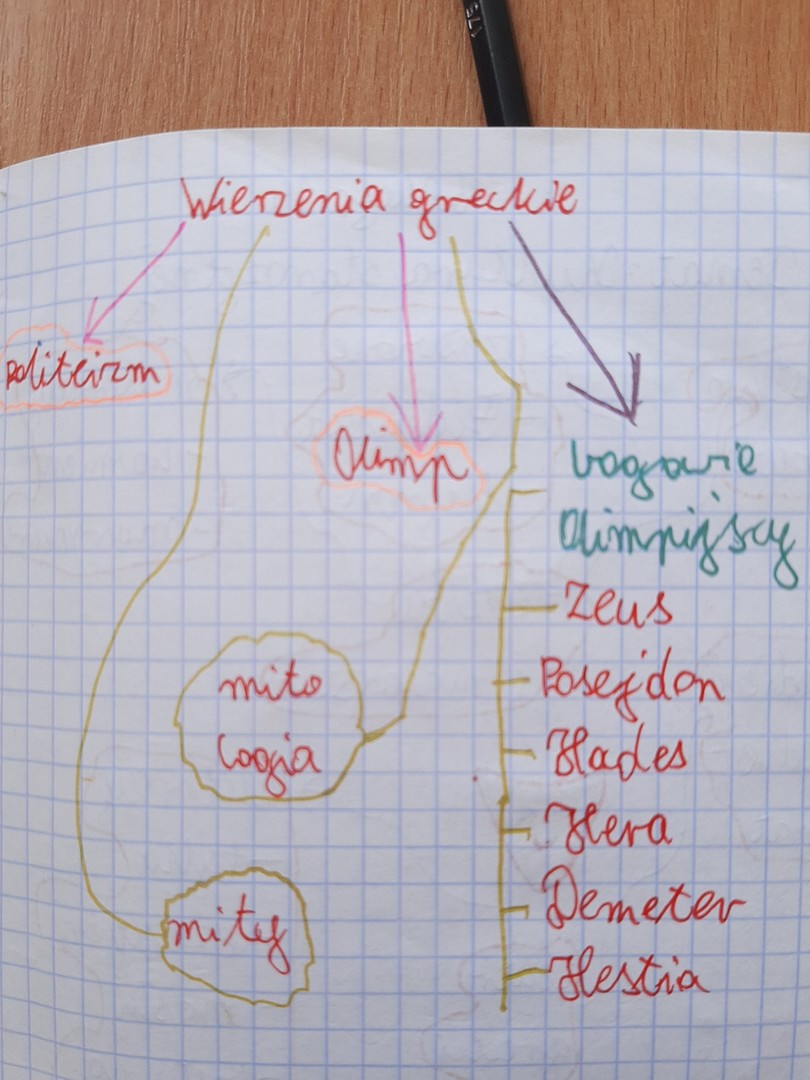 Wierzenia greckie
politeizm
Olimp
bogowie
Olimpijscy
Zeus
Posejdon
mito
logia
Hades
Hera
Demeter
mity
Hestia